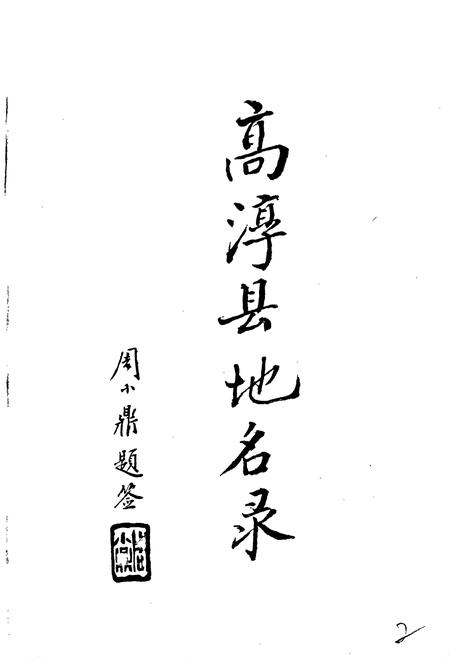 高淳县地名录
周小鼎题签
2